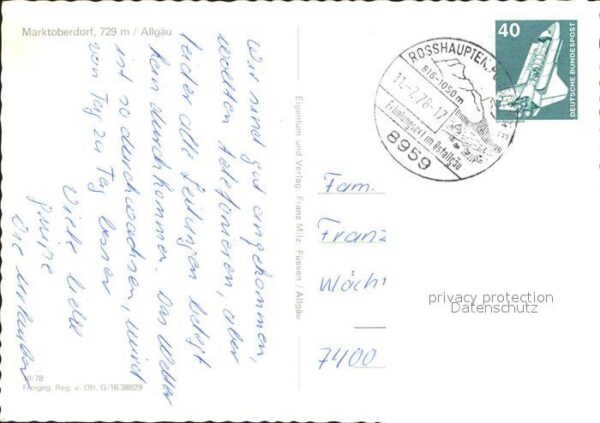 Marktoberdorf, 729 m / Allgäu
Wir sind gut angekommen,
wollten telefonieren, aber
leider alle Leitungen belegt
kein durchkommen. Das Wetter
ist so durchwachsen, wird
von Tag zu Tag besser
Viele liebe
Grüße
die Urlauber
10/78
Freigeg. Reg. v. Ofr. G/16 38829
Eigenhom und Verlag Franz Milz, Füssen / Allgäu
ROSSHAUPTEN
816-1050 m
11.-7.78-17
Erholungsort im Ostallgäu
8959
40
DEUTSCHE BUNDESPOST
Fam.
Franz
Wäch
7400
privacy protection
Datenschutz